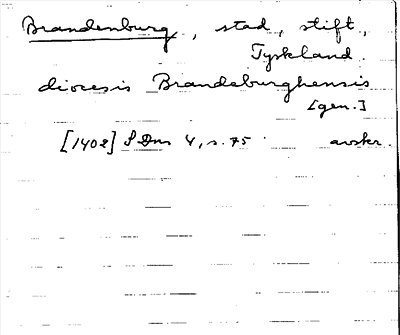 Brandenburg, stad, stift,
Tyskland.
diocesis Brandeburghensis
[gen.]
[1402] SDns 4, s. 75 avskr.